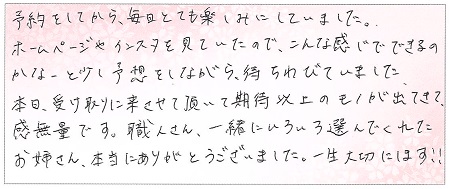 予約をしてから、毎日とても楽しみにしていました。
ホームページやインスタを見ていたので、こんな感じでできるの
かなーと少し予想をしながら、待ちわびていました
本日、受け取りに来させて頂いて期待以上のモノが出てきて、
感無量です。職人さん、一緒にいろいろ選んでくれた
お姉さん、本当にありがとうございました。一生大切にします!!